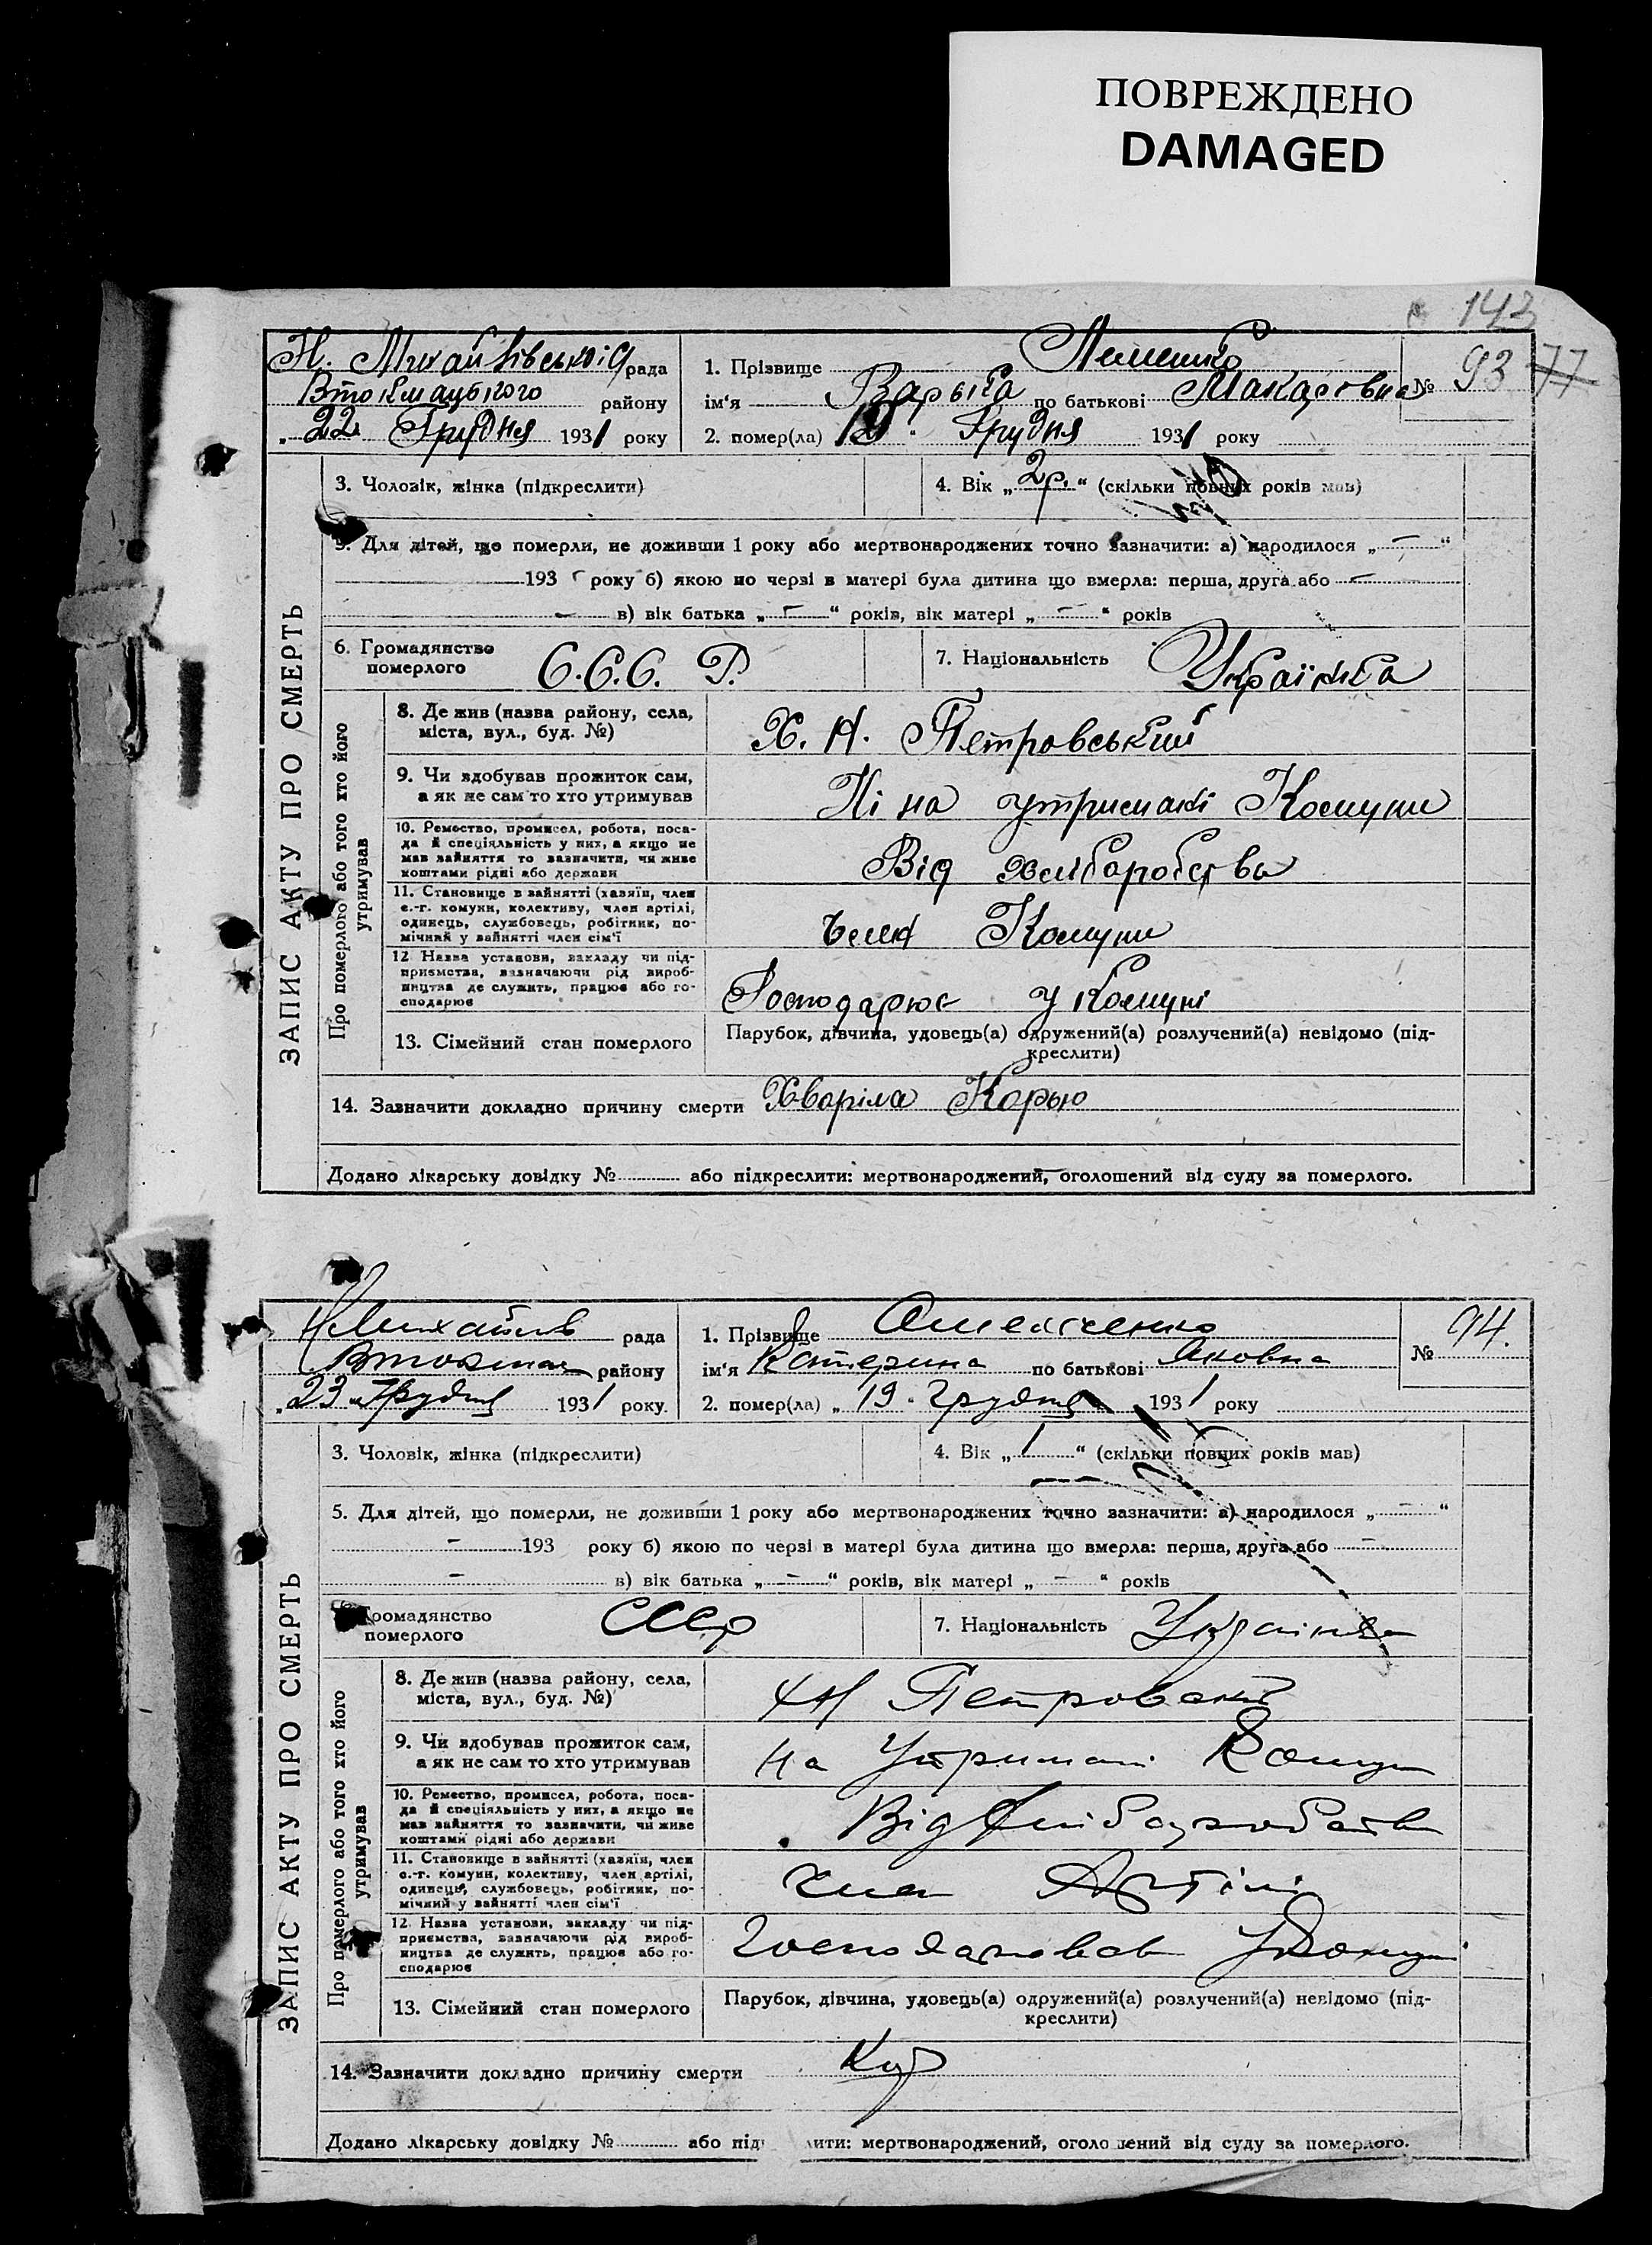 ПОВРЕЖДЕНО
DAMAGED
143
Н. Михайлівської рада
Втокмацького району
„22 Грудня 1931 року
1. Прізвище
ім'я Варька по батькові Макарівна
№ 93 77
2. помер(ла) Грудня 1931 року
ЗАПИС АКТУ ПРО СМЕРТЬ
3. Чоловік, жінка (підкреслити)
4. Вік „2р.“ (скільки повних років мав)
5. Для дітей, що померли, не доживши 1 року або мертвонароджених точно зазначити: а) народилося „-“
193 року б) якою по черзі в матері була дитина що вмерла: перша, друга або -
- в) вік батька „-“ років, вік матері „-“ років
6. Громадянство
померлого
С.С.С. Р.
7. Національність Українка
Про померлого або того хто його
утримував
8. Де жив (назва району, села,
міста, вул., буд. №)
Х. Н. Петровський
9. Чи здобував прожиток сам,
а як не сам то хто утримував
Ні на утримані Комуни
10. Ремество, промисел, робота, поса-
да й спеціяльність у них, а якщо не
мав зайняття то зазначити, чи живе
коштами рідні або держави
Від хліборобства
11. Становище в зайнятті (хазяїн, член
с.-г. комуни, колективу, член артілі,
одинець, службовець, робітник, по-
мічний у зайнятті член сім'ї
Член Комуни
12 Назва установи, закладу чи під-
приємства, зазначаючи рід вироб-
ництва де служить, працює або го-
сподарює
Господарює у Комуні
13. Сімейний стан померлого
Парубок, дівчина, удовець(а) одружений(а) розлучений(а) невідомо (під-
креслити)
14. Зазначити докладно причину смерти Хваріла Корью
Додано лікарську довідку № або підкреслити: мертвонароджений, оголошений від суду за померлого.
Н Михайлів рада
Втокмац району
„23 „Грудня 1931 року
1. Прізвище Омельченко
ім'я Катерина по батькові Яковна
№ 94.
2. помер(ла) „19“ Грудня 1931 року
ЗАПИС АКТУ ПРО СМЕРТЬ
3. Чоловік, жінка (підкреслити)
4. Вік „1“ (скільки повних років мав)
5. Для дітей, що померли, не доживши 1 року або мертвонароджених точно зазначити: а) народилося „-“
- 193 року б) якою по черзі в матері була дитина що вмерла: перша, друга або -
- в) вік батька „-“ років, вік матері „-“ років
Громадянство
померлого
СССР
7. Національність Українка
Про померлого або того хто його
утримував
8. Де жив (назва району, села,
міста, вул., буд. №)
ХН Петровский
9. Чи здобував прожиток сам,
а як не сам то хто утримував
На Утримані Комун
10. Ремество, промисел, робота, поса-
да й спеціяльність у них, а якщо не
мав зайняття то зазначити, чи живе
коштами рідні або держави
Від Хліборобств
11. Становище в зайнятті (хазяїн, член
с.-г. комуни, колективу, член артілі,
одинець, службовець, робітник, по-
мічний у зайнятті член сім'ї
член Артілі
12 Назва установи, закладу чи під-
приємства, зазначаючи рід вироб-
ництва де служить, працює або го-
сподарює
Господарював У Комуні
13. Сімейний стан померлого
Парубок, дівчина, удовець(а) одружений(а) розлучений(а) невідомо (під-
креслити)
14. Зазначити докладно причину смерти
Додано лікарську довідку № або під лити: мертвонароджений, оголо ений від суду за померлого.